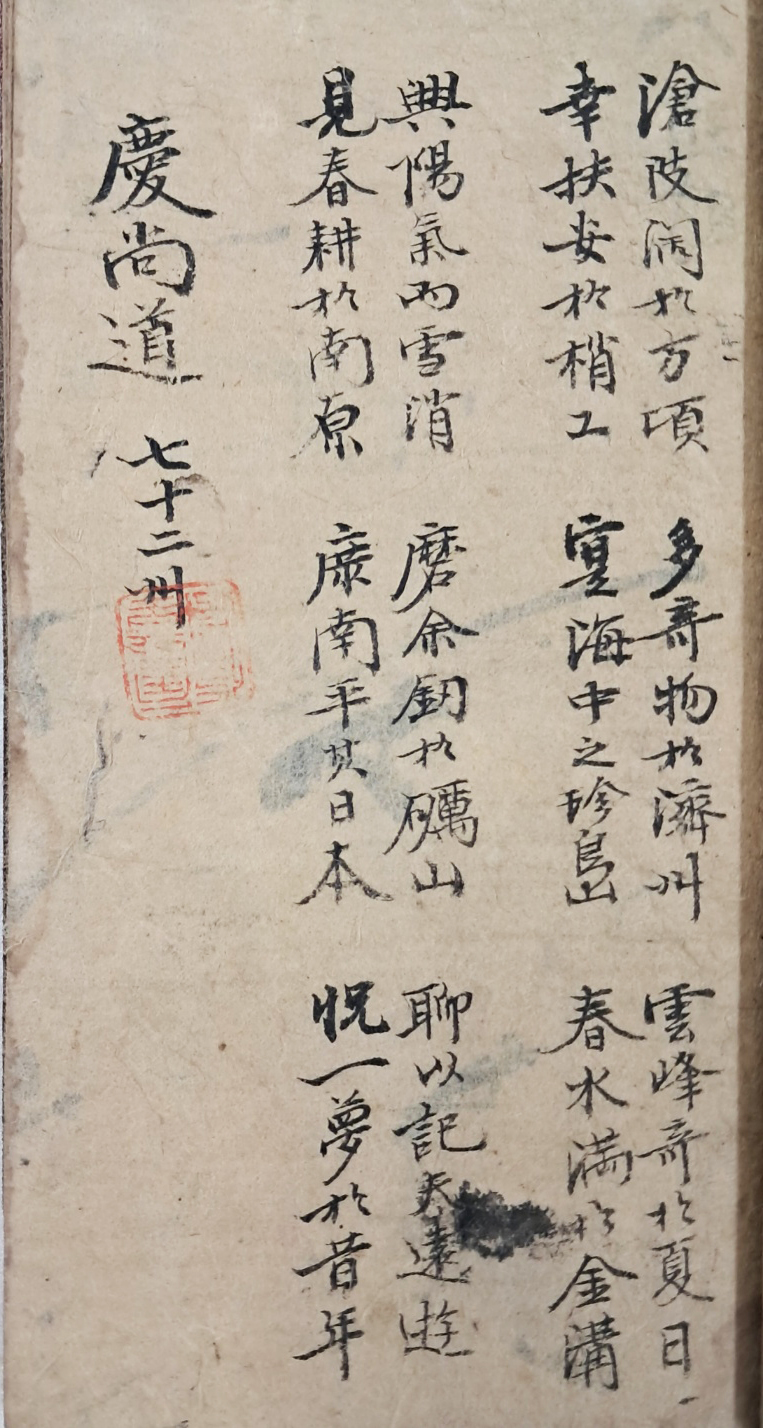 滄陂濶於方頃
幸扶安於梢工
多奇物於濟州
寔海中之珍島
雲峰奇於夏日
春水満於金溝
興陽氣而雪消
見春耕於南原
磨余釰於礪山
康南平其日本
聊以記夫遠遊
怳一夢於昔年
慶尙道 七十二州